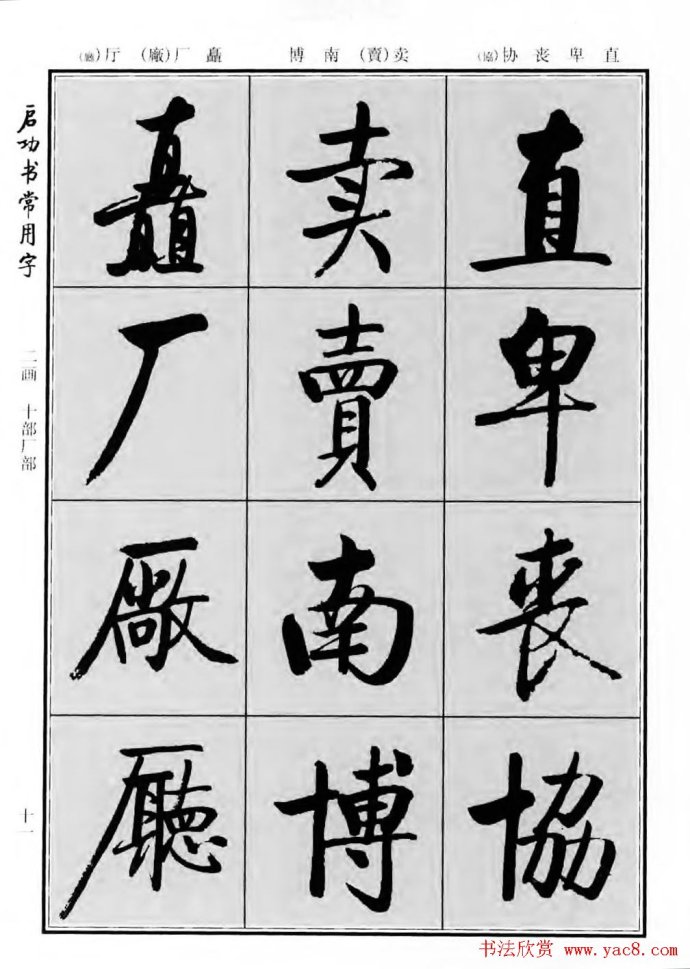 直 卑 丧 协(協)
卖(賣) 南 博
矗 厂(廠) 厅(廳)
直卑喪協
卖賣南博
矗厂廠廳
启功书常用字
二画 十部厂部
十一
书法欣赏 www.yac8.com